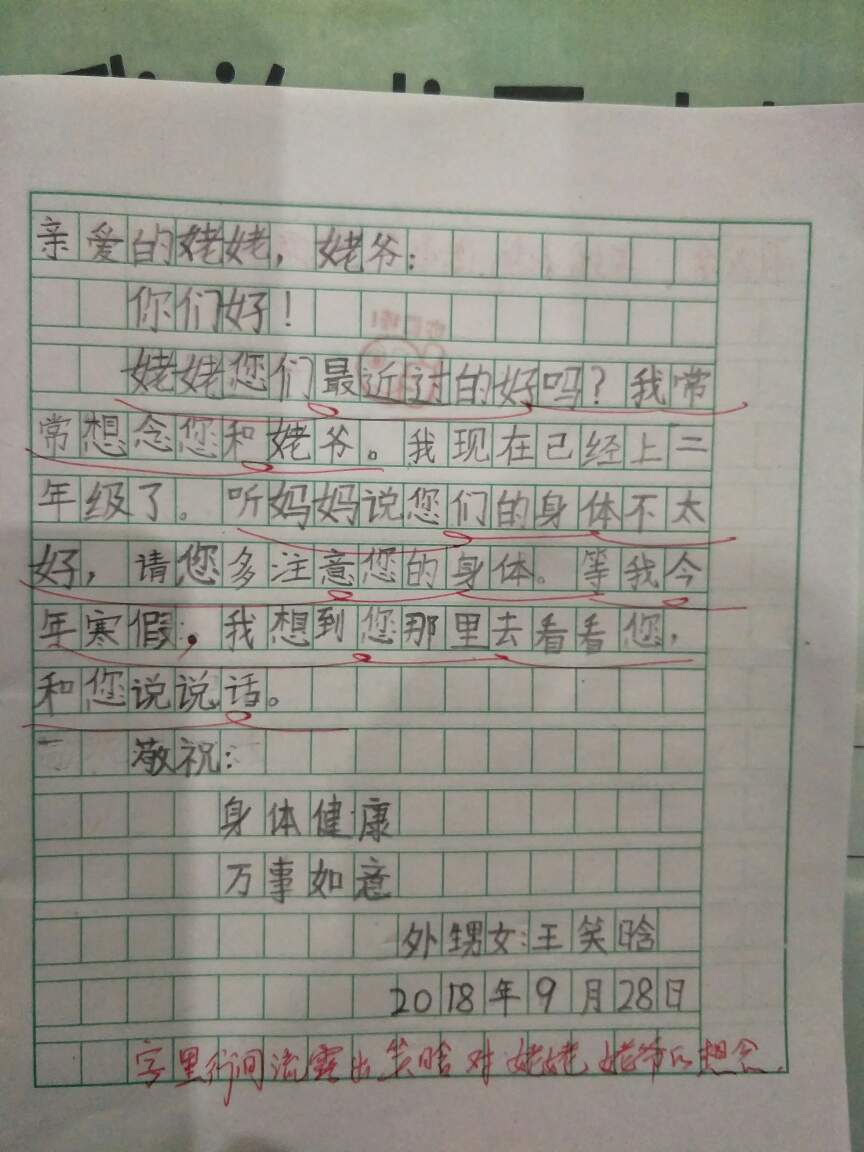 亲爱的姥姥，姥爷：
你们好！
姥姥您们最近过的好吗？我常
常想念您和姥爷。我现在已经上二
年级了。听妈妈说您们的身体不太
好，请您多注意您的身体。等我今
年寒假，我想到您那里去看看您，
和您说说话。
敬祝：
身体健康
万事如意
外甥女：王笑晗
2018年9月28日
字里行间流露出笑晗对姥姥姥爷的想念.